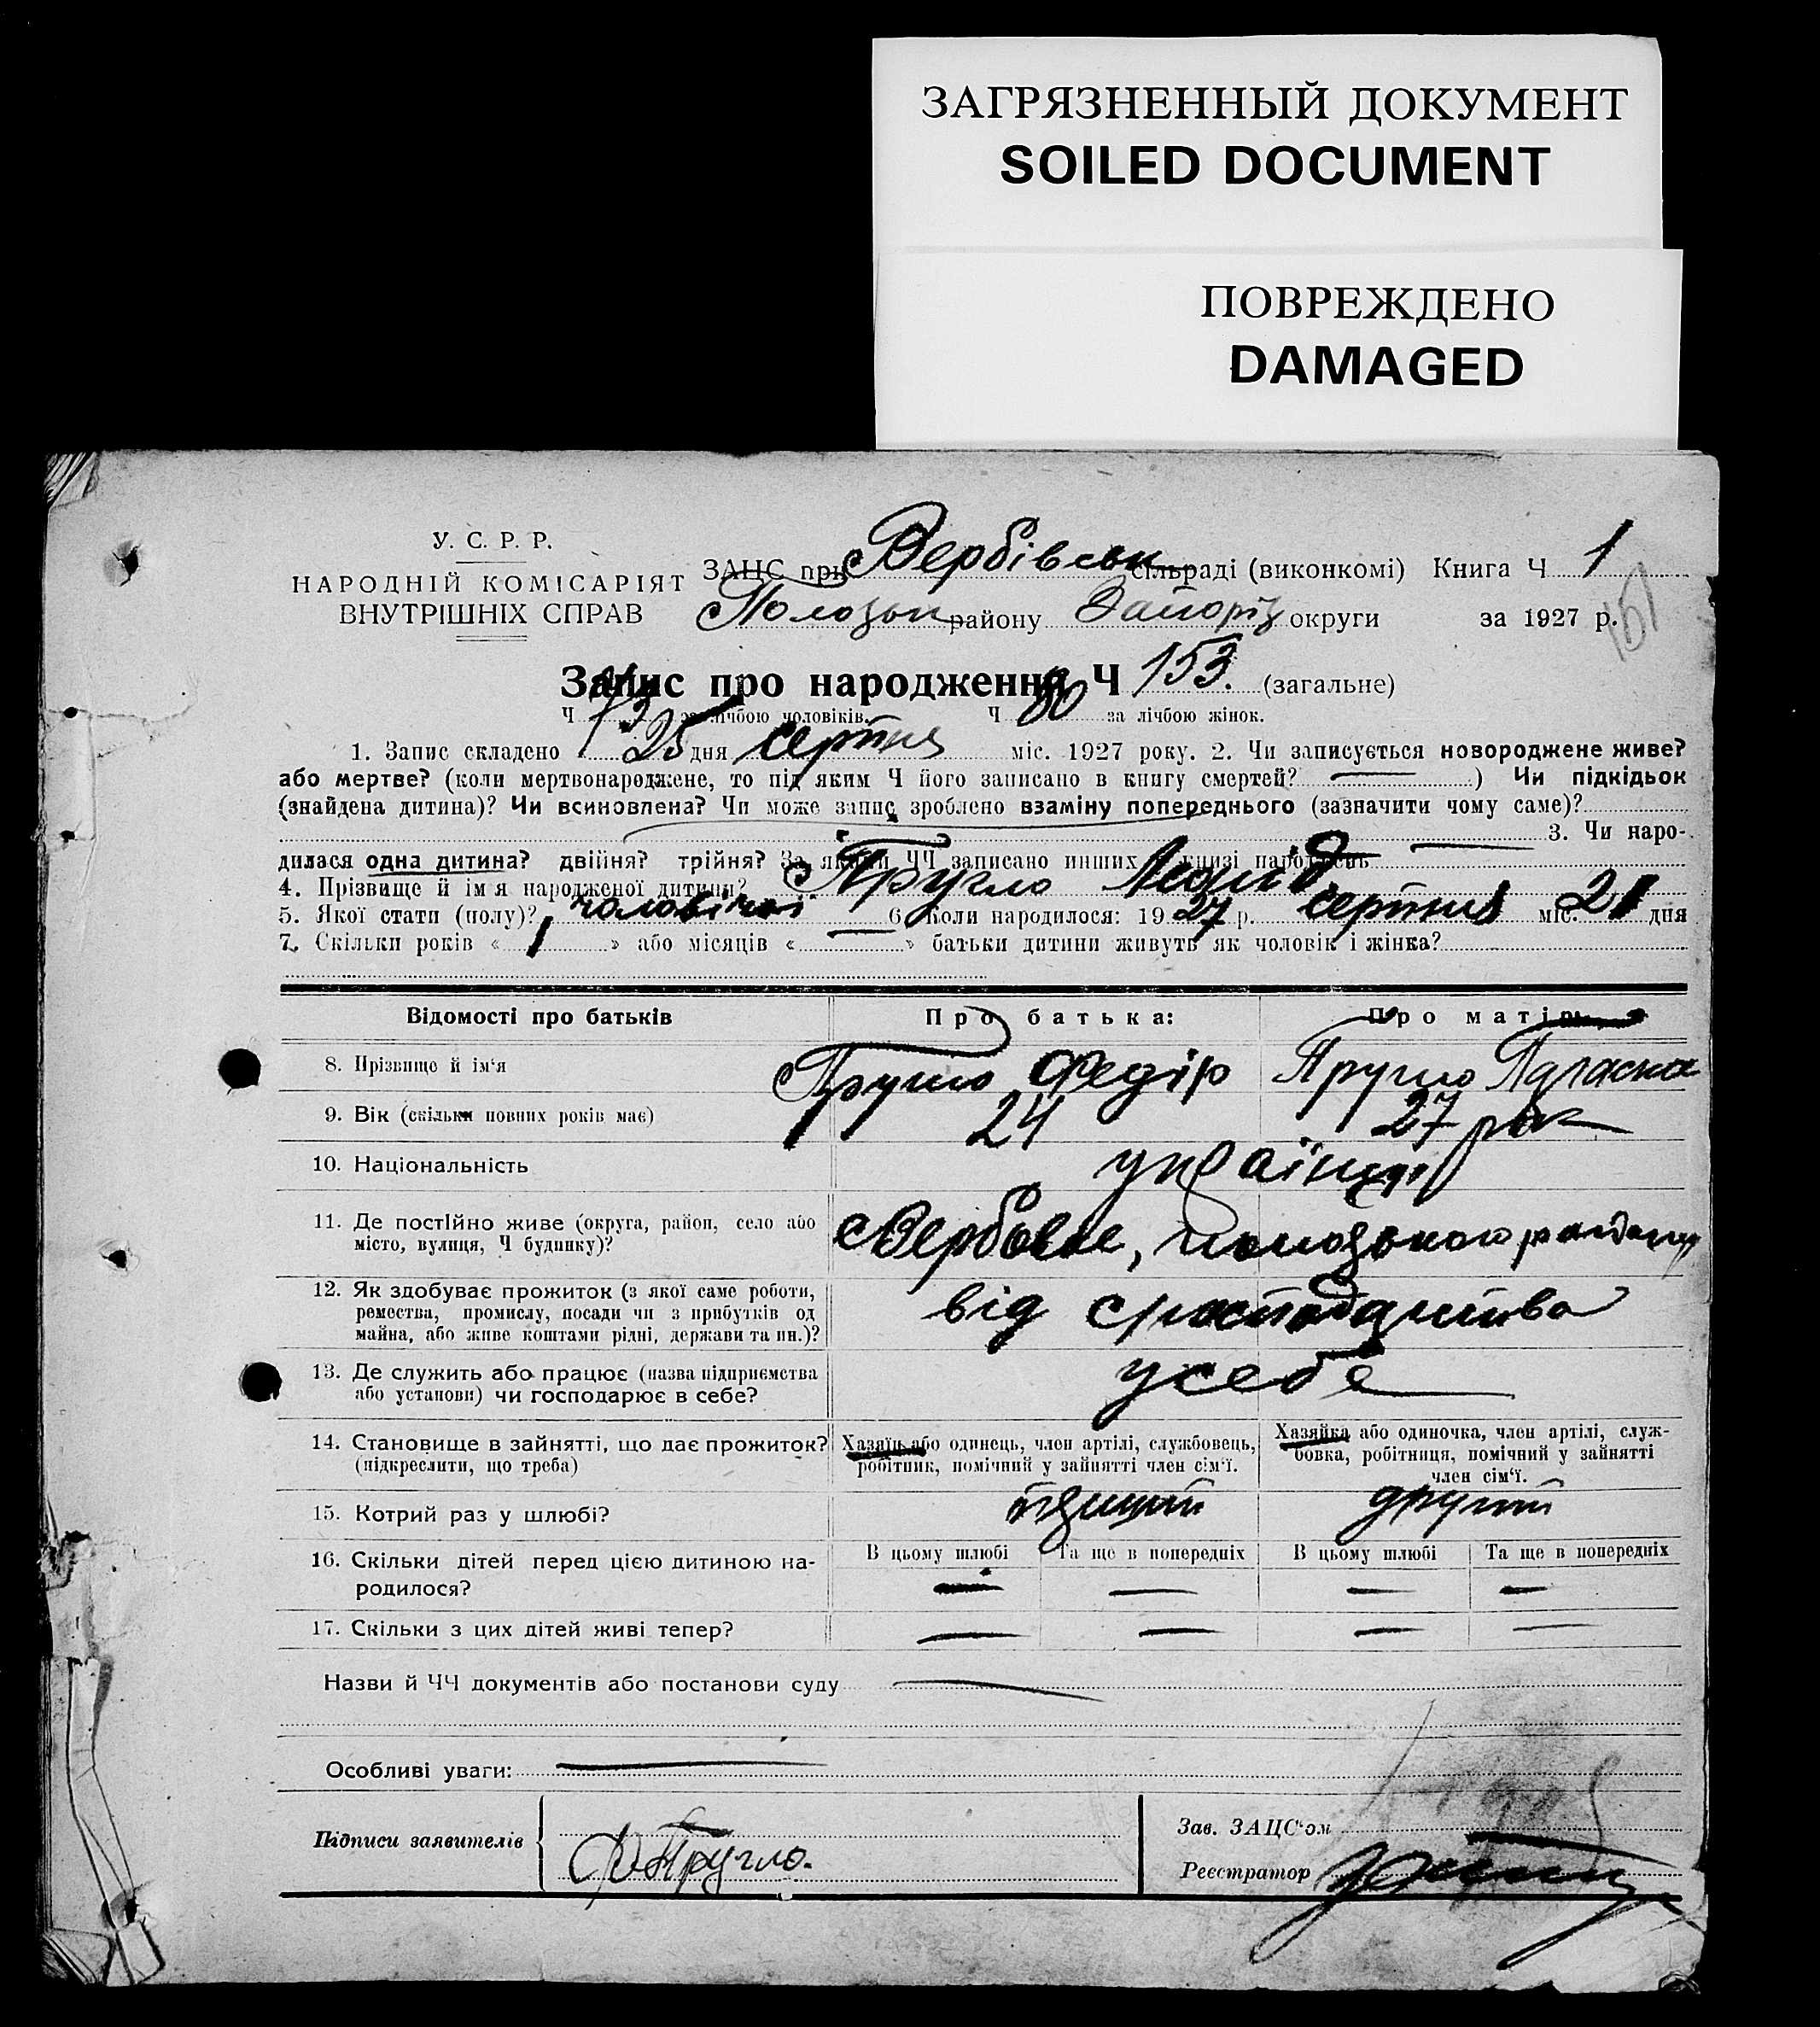 ЗАГРЯЗНЕННЫЙ ДОКУМЕНТ
SOILED DOCUMENT
ПОВРЕЖДЕНО
DAMAGED
У. С. Р. Р.
НАРОДНІЙ КОМІСАРІЯТ
ВНУТРІШНІХ СПРАВ
ЗАЦС при Вербівськ сільраді (виконкомі) Книга Ч 1
Полозьк району Запоріз округи за 1927 р.
161
Запис про народження Ч 153. (загальне)
Ч 73 за лічбою чоловіків. Ч 80 за лічбою жінок.
1. Запис складено 25 дня серпня міс. 1927 року. 2. Чи записується новороджене живе?
або мертве? (коли мертвонароджене, то під яким Ч його записано в книгу смертей? — ) Чи підкідьок
(знайдена дитина)? Чи всиновлена? Чи може запис зроблено взаміну попереднього (зазначити чому саме)?
3. Чи наро-
дилася одна дитина? двійня? трійня? За якими ЧЧ записано инших в книзі народжень —
4. Прізвище й ім'я народженої дитини? Пругло Леонід
5. Якої стати (полу)? чоловічої 6. Коли народилося: 1927 р. серпня міс. 21 дня
7. Скільки років « 1 » або місяців « — » батьки дитини живуть як чоловік і жінка?
Відомості про батьків Про батька: Про матір:
8. Прізвище й ім'я Пругло Федір Пругло Палаska
9. Вік (скільки повних років має) 24 27 рок
10. Національність українці
11. Де постійно живе (округа, район, село або
місто, вулиця, Ч будинку)? Вербове, Полозького району
12. Як здобуває прожиток (з якої саме роботи,
ремества, промислу, посади чи з прибутків од
майна, або живе коштами рідні, держави та ин.)? від сг господарства
13. Де служить або працює (назва підприємства
або установи) чи господарює в себе? у себе
14. Становище в зайнятті, що дає прожиток?
(підкреслити, що треба)
Хазяїн або одинець, член артілі, службовець,
робітник, помічний у зайнятті член сім'ї.
Хазяйка або одиночка, член артілі, служ-
бовка, робітниця, помічний у зайнятті
член сім'ї.
15. Котрий раз у шлюбі? другий
16. Скільки дітей перед цією дитиною на-
родилося?
В цьому шлюбі Та ще в попередніх В цьому шлюбі Та ще в попередніх
— — — —
17. Скільки з цих дітей живі тепер? — — — —
Назви й ЧЧ документів або постанови суду —
Особливі уваги: —
Підписи заявителів Ф Пругло.
Зав. ЗАЦС'ом
Реєстратор